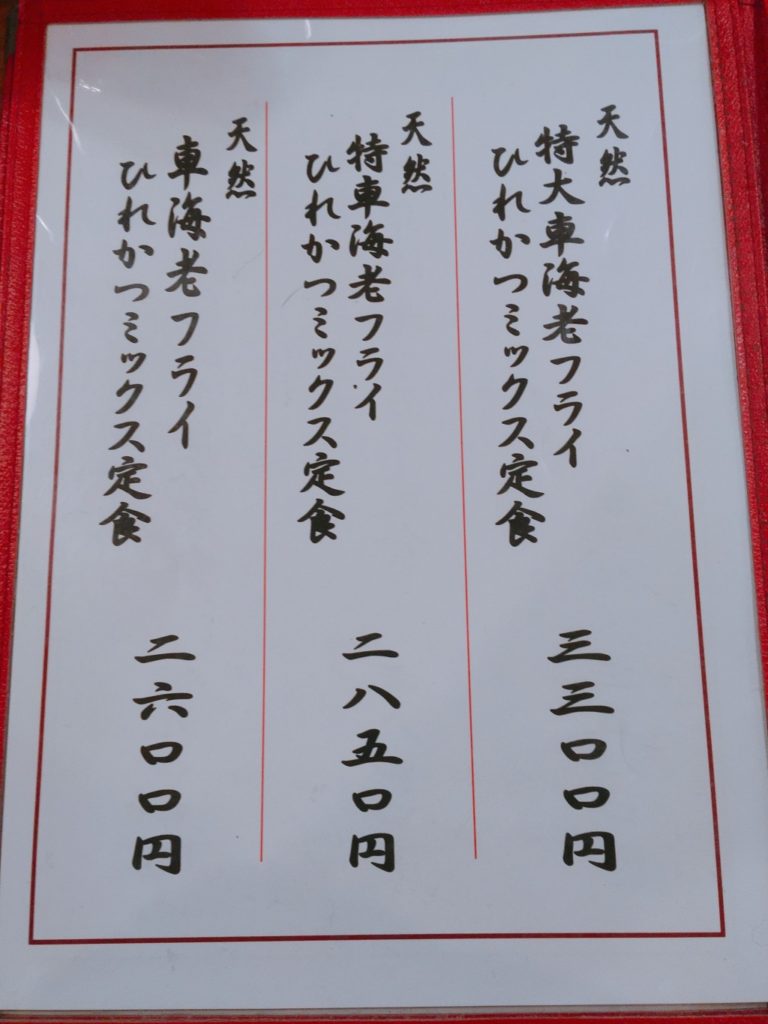 天然
特大車海老フライ
ひれかつミックス定食
三三〇〇円
天然
特車海老フライ
ひれかつミックス定食
二八五〇円
天然
車海老フライ
ひれかつミックス定食
二六〇〇円